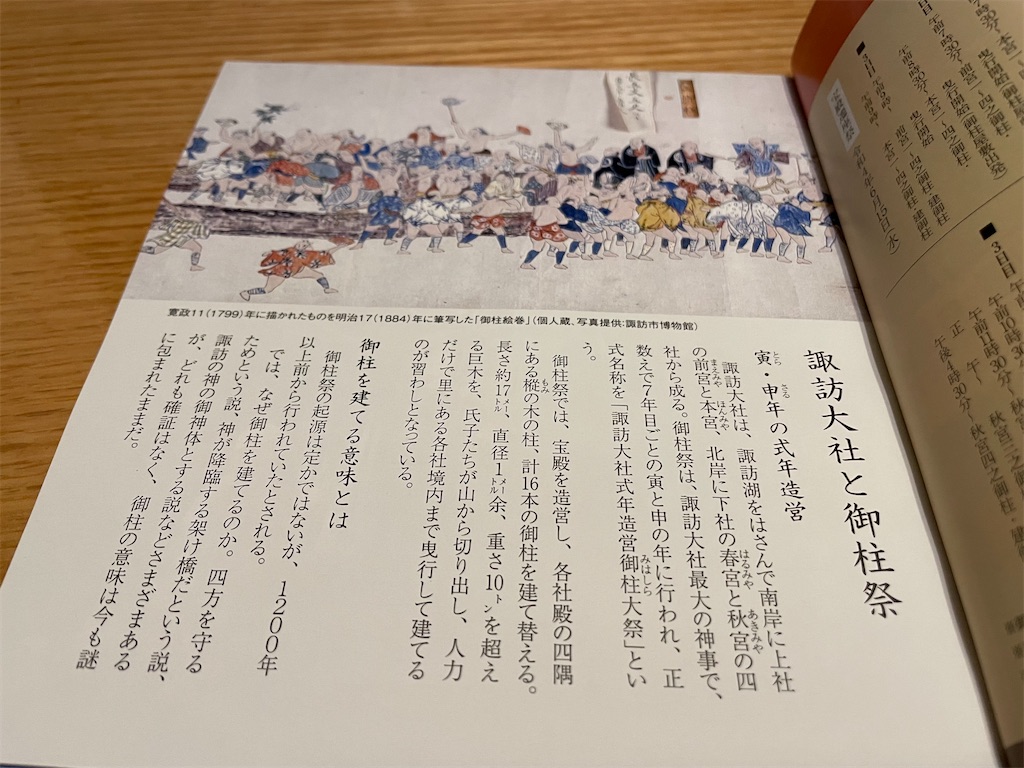 ■3日目
午前10時30分〜
午前11時30分〜
正　午〜
午後4時30分〜
秋宮四之御柱・建御柱
■3日目
午前7時30分〜
午前8時30分〜
曳行開始
建御柱
令和4年6月15日(水)
諏訪大社と御柱祭
とら　さる
寅・申年の式年造営
諏訪大社は、諏訪湖をはさんで南岸に上社
まえみや　ほんみや　はるみや　あきみや
の前宮と本宮、北岸に下社の春宮と秋宮の四
社から成る。御柱祭は、諏訪大社最大の神事で、
数えで7年目ごとの寅と申の年に行われ、正
みはしら
式名称を「諏訪大社式年造営御柱大祭」とい
う。
御柱祭では、宝殿を造営し、各社殿の四隅
もみ
にある樅の木の柱、計16本の御柱を建て替える。
長さ約17メートル、直径1メートル余、重さ10トンを超え
る巨木を、氏子たちが山から切り出し、人力
だけで里にある各社境内まで曳行して建てる
のが習わしとなっている。
御柱を建てる意味とは
御柱祭の起源は定かではないが、1200年
以上前から行われていたとされる。
では、なぜ御柱を建てるのか。四方を守る
ためという説、神が降臨する架け橋だという説、
諏訪の神の御神体とする説などさまざまある
が、どれも確証はなく、御柱の意味は今も謎
に包まれたままだ。
寛政11(1799)年に描かれたものを明治17(1884)年に筆写した「御柱絵巻」(個人蔵、写真提供:諏訪市博物館)